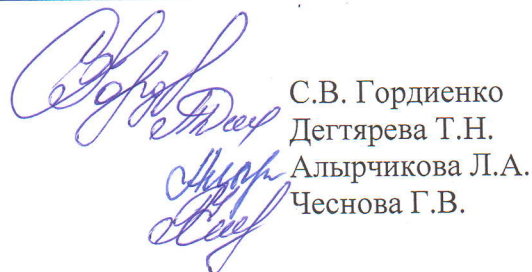 С.В. Гордиенко
Дегтярева Т.Н.
Алырчикова Л.А.
Чеснова Г.В.